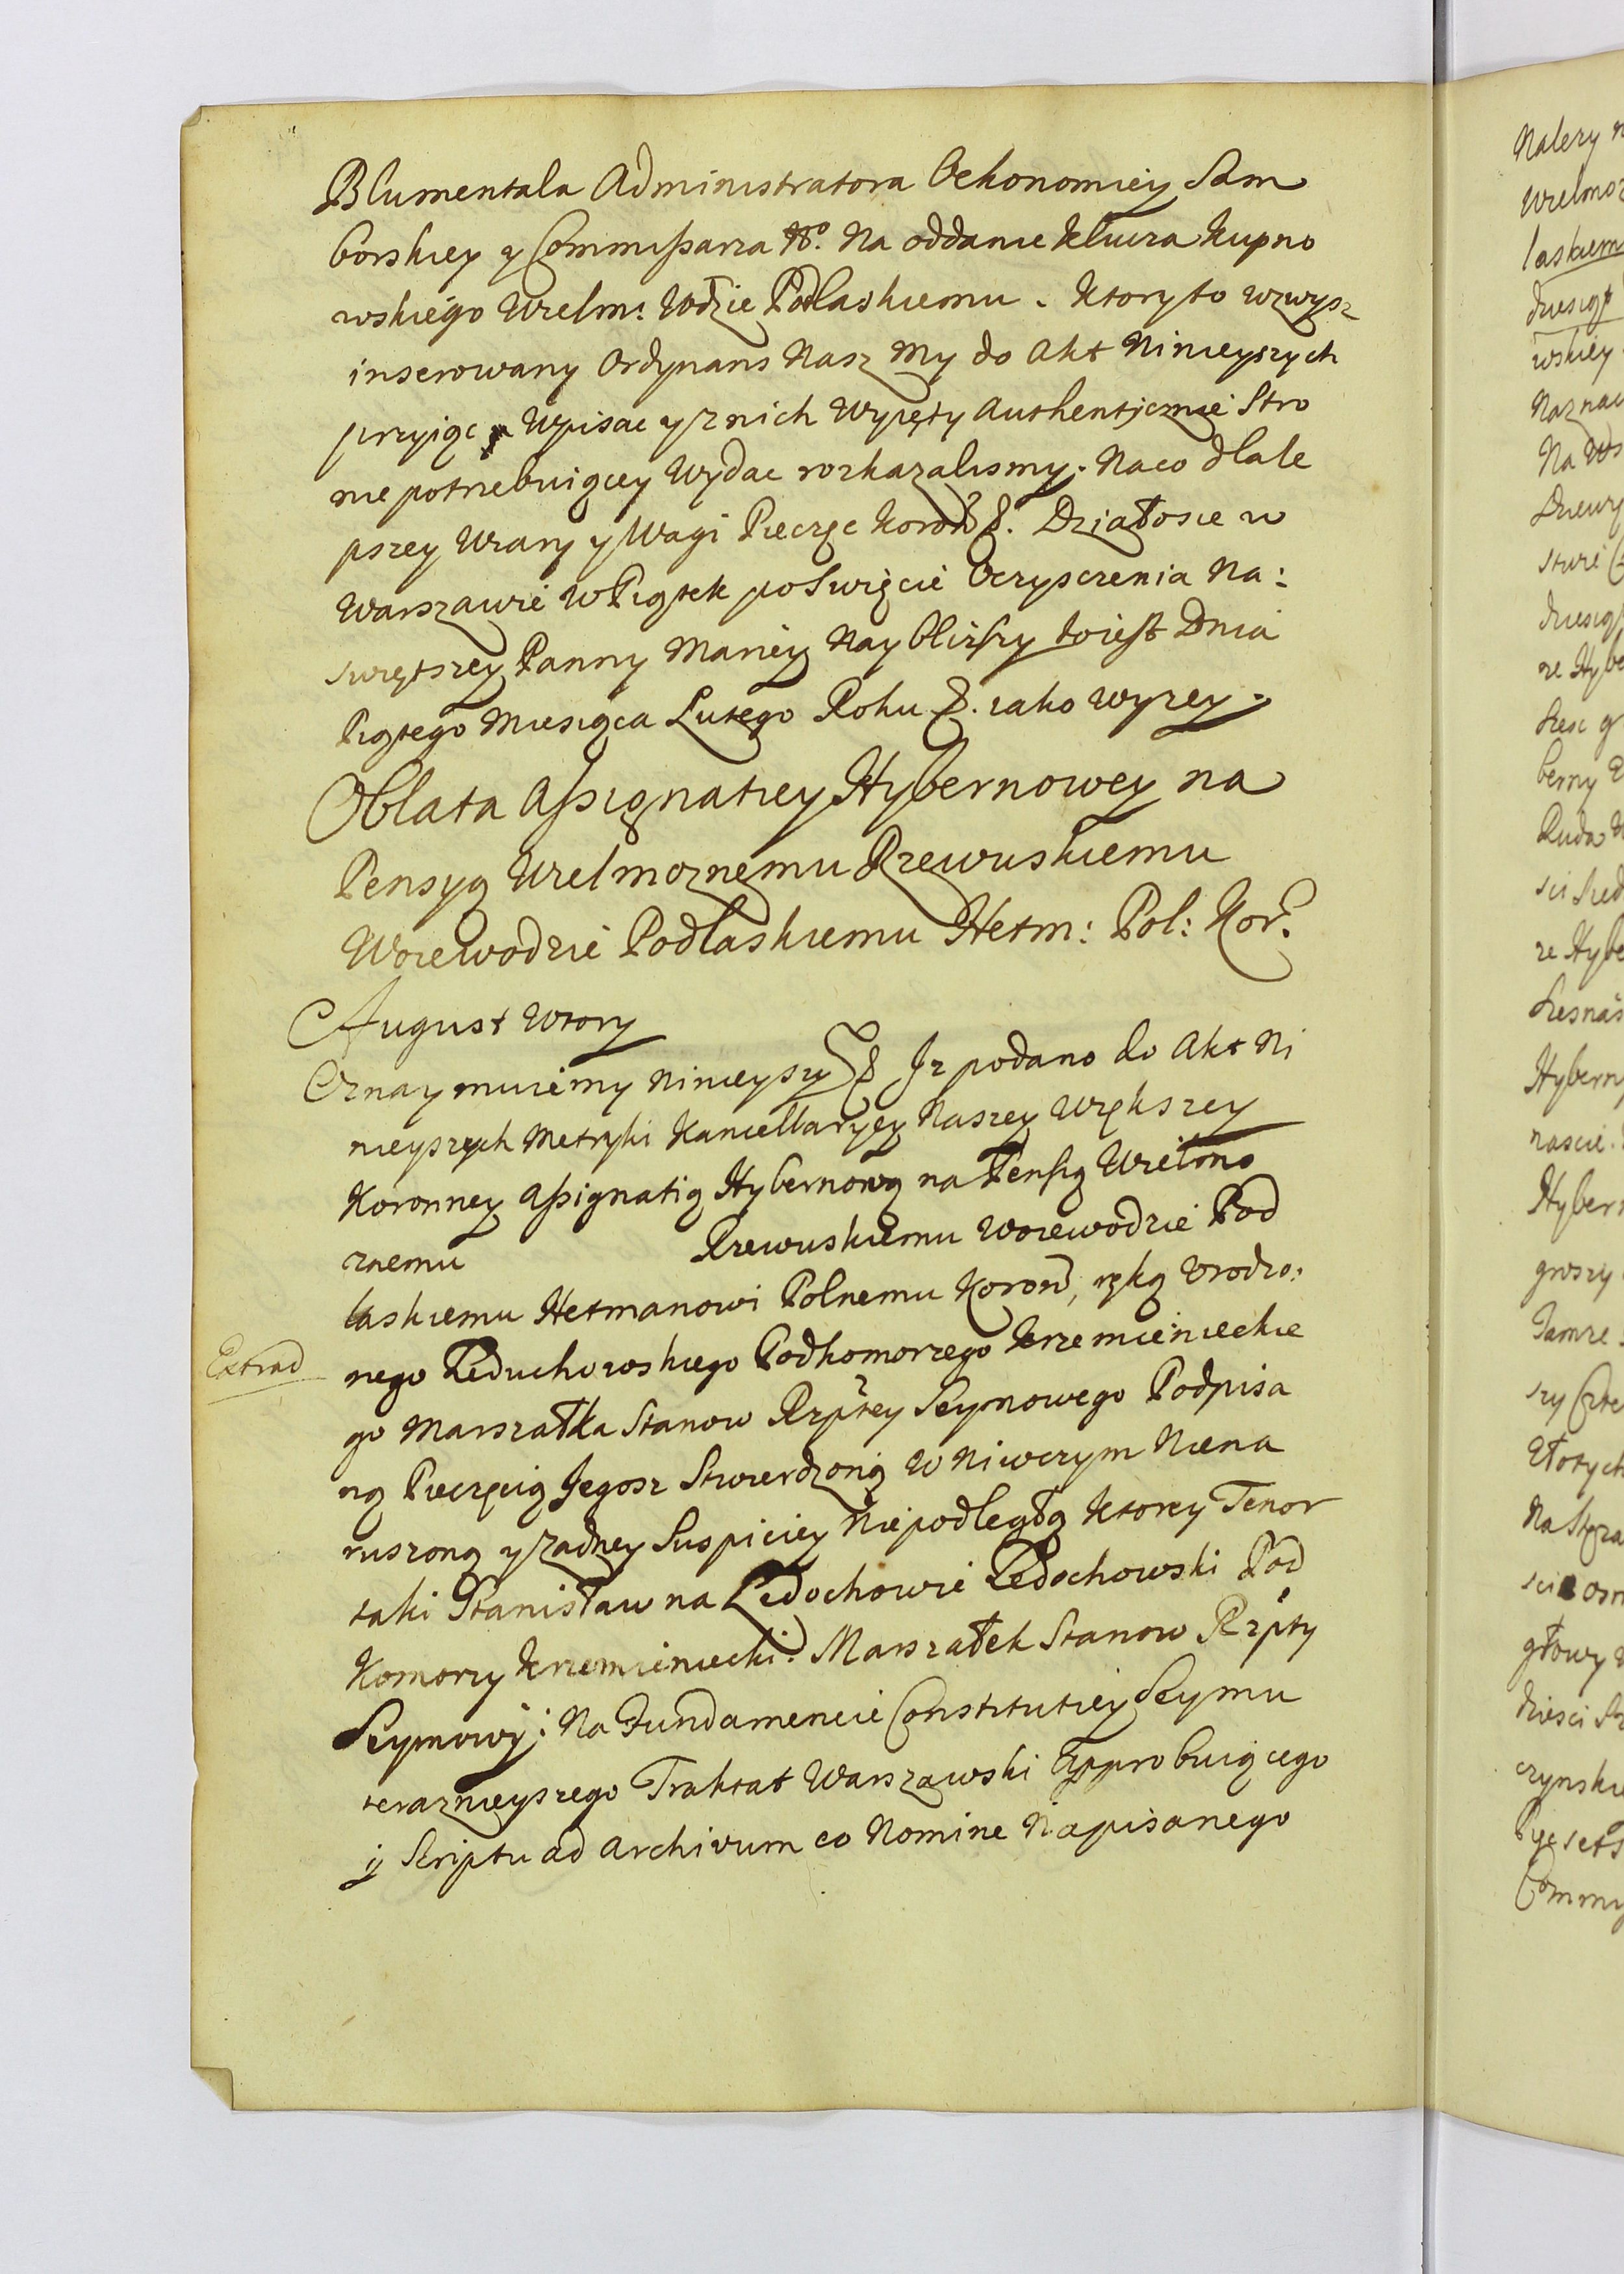 Blumentala Administratora Oekonomiey Sam
borskiey y Commissarza No. Na oddanie klucza Kupno
wskiego Wielm: Wdzie Podlaskiemu. Ktory to wzwysz
inserowany Ordynans Nasz My do Akt Ninieyszych
przyiąc Wpisac y z nich Wypęty Authentycznie Stro
nie potrzebuiącey Wydac roskazalismy. Na co dla le
pszey Wiary y Wagi Pieczęc Koron &. Działo sie w
Warszawie w Piątek po Swięcie Oczysczenia Na:
swiętszey Panny Mariey Nayblizszy to iest Dnia
Piątego Miesiąca Lutego Roku &. iako wyzey.
Oblata Assignatiey Hybernowey na
Pensyą Wielmoznemu Rzewuskiemu
Woiewodzie Podlaskiemu Hetm: Pol: Kor.
August Wtory
Oznaymuiemy Ninieyszy & Iz podano do Akt Ni
nieyszych Metryki Kancellaryey Naszey Większey
Koronney Assignatią Hybernową na Pensią Wielmo
znemu Rzewuskiemu Woiewodzie Pod
laskiemu Hetmanowi Polnemu Koron, ręką Urodzo:
nego Leduchowskiego Podkomorzego Krzemienieckie
go Marszałka Stanow Rzptey Seymowego Podpisa
ną Pieczęcią Iegosz Stwierdzoną w Niwczym Niena
ruszoną y zadney Suspiciey Niepodległą Ktorey Tenor
taki Stanisław na Ledochowie Ledochowski Pod
Komorzy Krzemieniecki. Marszałek Stanow Rzpty
Seymowy: Na Fundamencie Constitutiey Seymu
teraznieyszego Traktat Warszawski Approbuiącego
y Scriptu ad Archivum eo Nomine Napisanego
Extrad
Nalezy
Wielmoz
laskiemu
dziesiąt
wskiey
Naznac
dziesiąt
ze Hybe
berny
Ruda
ze Hybe
Hyberny
nascie.
Hybern
groszy
Tamze
Złotych
Na
głowy
dziesci
czynskie
Commi